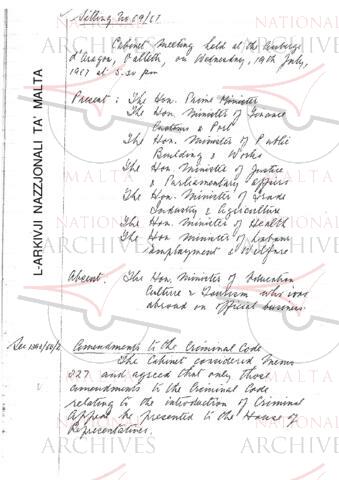 Sitting No 69/67
Cabinet Meeting held at the Auberge
d'Aragon, Valletta, on Wednesday, 19th July,
1967 at 5.30 pm
Present : The Hon. Prime Minister
The Hon. Minister of Finance
Customs & Port
The Hon. Minister of Public
Building & Works
The Hon. Minister of Justice
& Parliamentary Affairs
The Hon. Minister of Trade
Industry & Agriculture
The Hon. Minister of Health
The Hon. Minister of Labour
Employment & Welfare
Absent. The Hon. Minister of Education
Culture & Tourism who was
abroad on official business
Amendments to the Criminal Code
The Cabinet considered Memo
227 and agreed that only those
amendments to the Criminal Code
relating to the introduction of Criminal
Appeal be presented to the House of
Representatives.
L-ARKIVJI NAZZJONALI TA' MALTA
NATIONAL
MALTA
ARCHIVES